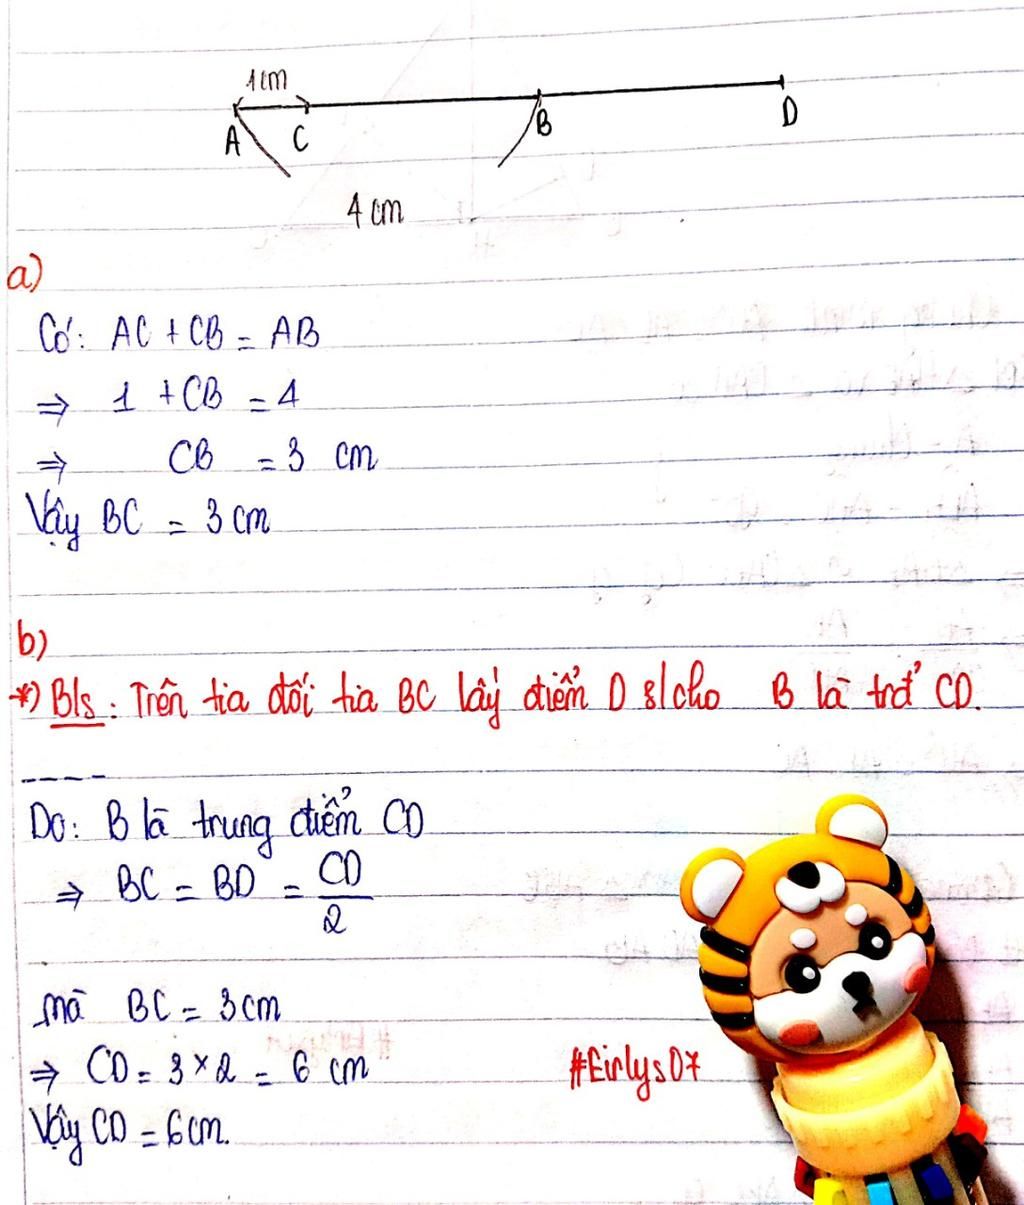 1cm
A C B D
4 cm
a)
Có: AC + CB = AB
⇒ 1 + CB = 4
⇒ CB = 3 cm
Vậy BC = 3 cm
b)
*) B/s: Trên tia đối tia BC lấy điểm D s/cho B là trđ CD.
Do: B là trung điểm CD
⇒ BC = BD = CD/2
mà BC = 3cm
⇒ CD = 3 × 2 = 6 cm
#Eirlys07
Vậy CD = 6cm.